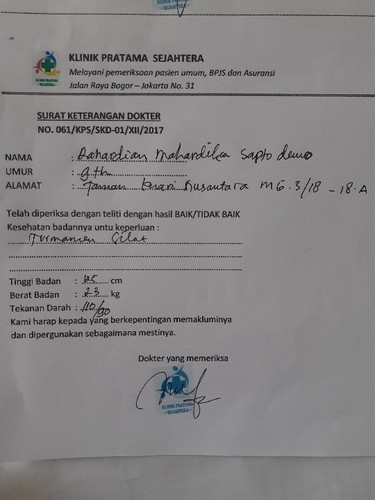 KLINIK PRATAMA SEJAHTERA
Melayani pemeriksaan pasien umum, BPJS dan Asuransi
Jalan Raya Bogor – Jakarta No. 31
KLINIK PRATAMA
SURAT KETERANGAN DOKTER
NO. 061/KPS/SKD-01/XII/2017
NAMA : Rahardian Mahardika Sapto
UMUR : 9 th
ALAMAT : Taman Kenari Nusantara MG.3/18 - 18.A
Telah diperiksa dengan teliti dengan hasil BAIK/TIDAK BAIK
Kesehatan badannya untu keperluan :
Turnamen Silat
Tinggi Badan : cm
Berat Badan : 23 kg
Tekanan Darah : 110/90
Kami harap kepada yang berkepentingan memakluminya
dan dipergunakan sebagaimana mestinya.
Dokter yang memeriksa
KLINIK PRATAMA
SEJAHTERA